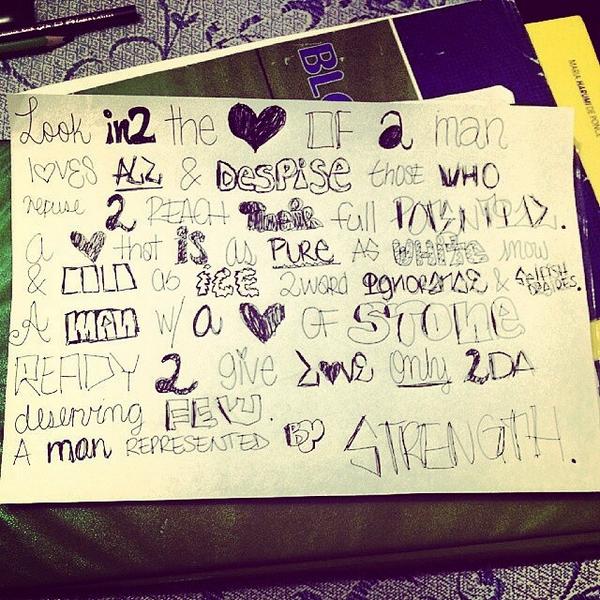 BLO
MARIA HARUMI DE PONCE
Look in2 the ♥ OF a man
lOVES ALL & DESPiSE those WHO
refuse 2 REACH Their full POTENTIAL.
a ♥ that is as PURE AS WHITE snow
& COLD as ICE 2ward IGNORANCE & SELFISH
A MAN w/ a ♥ OF STONE
READY 2 give LOVE only 2DA
deserving FEW.
A man REPRESENTED BY STRENGTH.